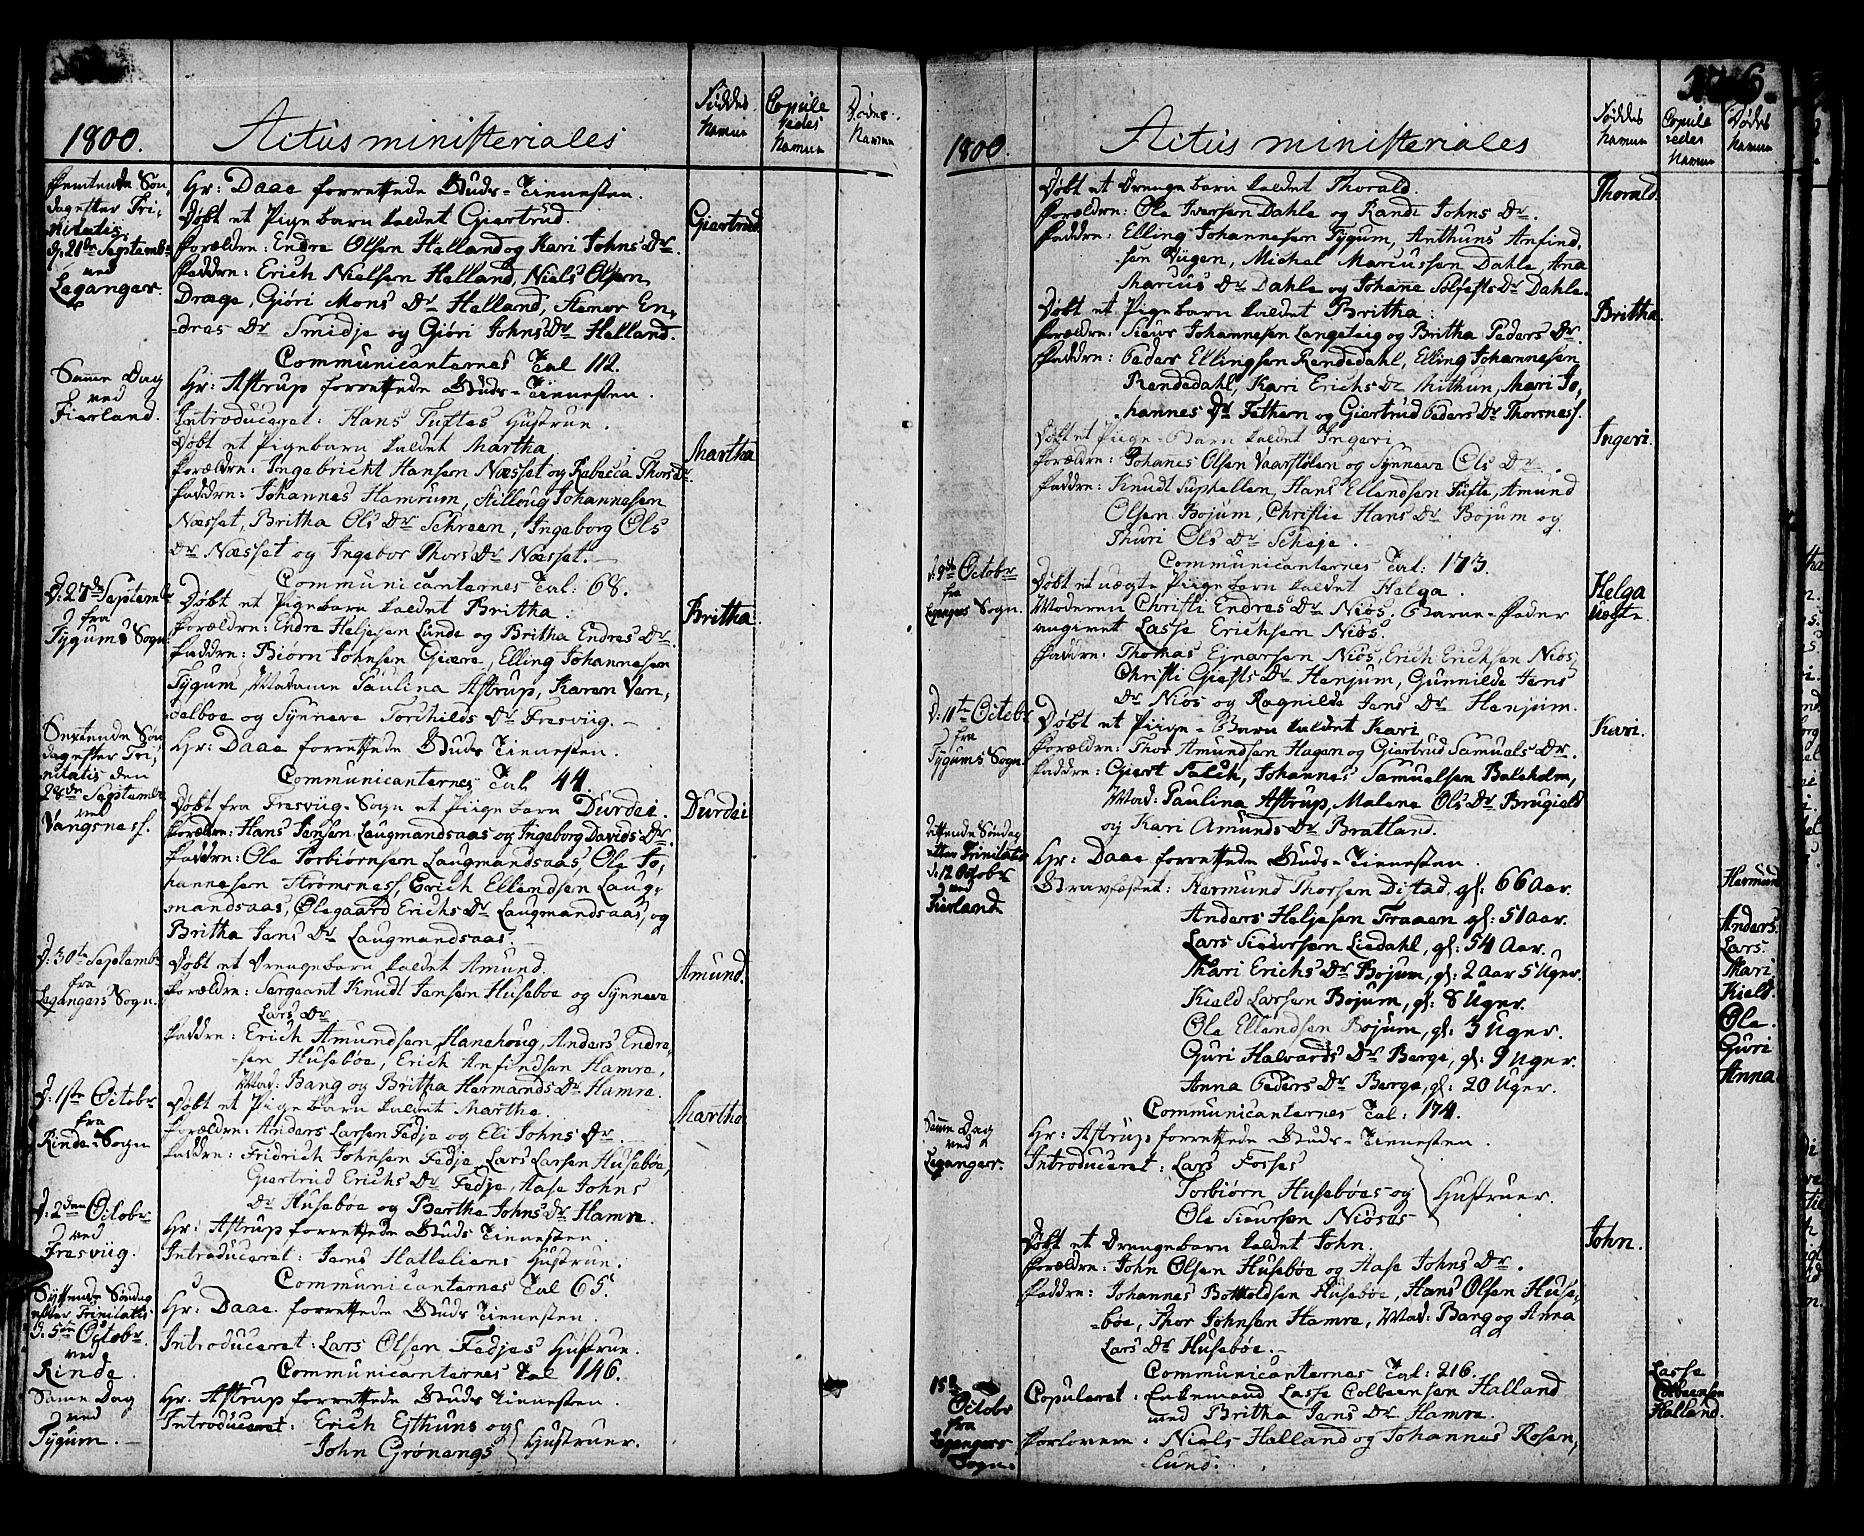 1800.
Actus ministeriales
Føddes Namen
Copule redes Namen
Dødes Namen
Femtende Søn,
dag efter Tri,
nitatis
d. 21de Septembr
ved
Leganger.
Hr: Daae forrettede Guds-Tienesten.
Døbt et Pigebarn kaldet Giertrud.
Giertrud.
Forældre: Endre Olsen Halland og Kari Johns Dr.
Faddre: Erich Nielsen Halland, Niels Olsen
Dræge, Giøri Mons Dr Halland,
dres Dr Smidje og Giøri Johns Dr Halland.
Communicanternes Tal 112.
Samme Dag
ved
Fierland.
Hr: Astrup forrettede Guds-Tienesten.
Introduceret: Hans Tuftes Hustrue.
Døbt et Pigebarn kaldet Martha
Martha
Forældre: Ingebricht Hansen Næsset og Rebecca Thors Dr.
Faddre: Johannes Hamrum, Johannesen
Næsset, Britha Ols Dr Schreen, Ingeborg Ols
Dr Næsset og Ingebor Thors Dr Næsset.
Communicanternes Tal: 68.
D: 27de Septembr
fra
Tygums Sogn
Døbt et Pigebarn kaldet Britha.
Britha.
Forældre: Endre Heljesen Lunde og Britha Endres Dr.
Faddre: Biørn Johnsen Giære, Elling Johannesen
Tygum, Madame Paulina Astrup, Karen Ven,
delboe og Synneve Torchilds Dr Fresviig.
Sextende Søn
dag efter Tri,
nitatis den
28de Septembr
ved
Vangsness.
Hr: Daae forrettede Guds Tienesten.
Communicanternes Tal 44.
Døbt fra Fresviig-Sogn et Piigebarn Durdei.
Durdei
Forældre: Hans Jensen Laugmandsaas og Ingeborg Davids Dr.
Faddre: Ole Torbiørnsen Laugmandsaas, Ole Jo,
hannesen Strømsness, Erich Ellendsen Laug,
mandsaas, Ølegaard Erichs Dr Laugmandsaas, og
Britha Jens Dr Laugmandsaas.
D: 30te Septembr
fra
Legangers Sogn.
Døbt et Drengebarn kaldet Amund.
Amund.
Forældre: Sergeant Knudt Jensen Husebøe og Synneve
Lars Dr.
Faddre: Erich Amundsen Hanehoug, Anders Endre,
sen Husebøe, Erich Anfindsen Hamre,
Mad: Bang og Britha Hermands Dr Hamre.
D: 1ste Octobr
fra
Rinde-Sogn
Døbt et Pigebarn kaldet Martha.
Martha
Forældre: Anders Larsen Fedje og Eli Johns Dr.
Faddre: Fridrich Johnsen Fedje, Lars Larsen Husebøe,
Giertrud Erichs Dr Fedje, Aase Johns
Dr Husebøe og Berthe Johns Dr Hamre.
D: 2den Octobr
ved
Fresviig.
Hr: Astrup forrettede Guds Tienesten.
Introduceret: Jens Hatleliens Hustrue.
Communicanternes Tal 65.
Syttende Søndag
efter Trinitatis
D: 5te Octobr
ved
Rinde.
Hr: Daae forrettede Guds Tienesten.
Introduceret: Lars Olsen Fedjes Hustrue.
Communicanternes Tal 146.
Samme Dag
ved
Tygum.
Hr: Astrup forrettede Guds-Tienesten.
Introduceret: Erich Ejthuns og
John Grønengs
Hustruer.
1800.
Actus ministeriales
Føddes Namen
Copule redes Namen
Dødes Namen
Døbt et Drengebarn kaldet Thorald.
Thorald.
Forældre: Ole Iversen Dahle og Randi Johns Dr.
Faddre: Elling Johannesen Tygum, Anthuns Anfind,
sen Viigen, Michel Marcussen Dahle, Ana
Marcus Dr Dahle og Johane Solfests Dr Dahle.
Døbt et Pigebarn kaldet Britha:
Britha.
Forældre: Siuur Johannesen Langeteig og Britha Peders Dr.
Faddre: Peder Ellingsen Rendedahl, Elling Johannesen
Rendedahl, Kari Erichs Dr Mithun, Mari Jo,
hannes Dr Fethen og Giertrud Peders Dr Thorsness.
Døbt et Piige-Barn kaldet Ingeri
Ingeri.
Forældre: Johanes Olsen Vaarstølen og Synneve Ols Dr.
Faddre: Knudt Suphellen, Hans Ellendsen Tufte, Amund
Olsen Bojum, Christie Hans Dr Bojum og
Thuri Ols Dr Scheje.
Communicanternes Tal: 173.
D: 9de Octobr
fra
Legangers Sogn.
Døbt et uægte Piigebarn kaldet Helga.
Helga
uægte
Moderen Christi Endres Dr Niøs, Barne-Fader
angivet Lasse Erichsen Niøs.
Faddre: Thomas Ejnersen Niøs, Erich Erichsen Niøs,
Christi Giests Dr Henjum, Gunnilde Jens
Dr Niøs og Ragnilde Jens Dr Henjum.
D: 11te Octobr
fra
Tygums Sogn.
Døbt et Piige-Barn kaldet Kari
Kari.
Forældre: Thor Amundsen Hagen og Giertrud Samuels Dr.
Faddre: Giert Falch, Johannes Samuelsen Balsholm,
Mad: Paulina Astrup, Malene Ols Dr Brugield
og Kari Amunds Dr Bratland.
Attende Søndag
efter Trinitatis
d: 12 Octobr
ved
Fierland
Hr: Daae forrettede Guds-Tienesten.
Gravfæstet: Hermund Thorsen Distad, gl: 66 Aar.
Hermund
Anders Heljesen Fraaen gl: 51 Aar.
Anders.
Lars Siuursen Liedahl, gl: 54 Aar.
Lars.
Mari Erichs Dr Bojum, gl: 2 Aar 5 Uger.
Mari
Kield Larsen Bojum, gl: 8 Uger.
Kield.
Ole Ellendsen Bojum, gl: 3 Uger.
Ole.
Guri Halvards Dr Berge, gl: 9 Uger.
Guri
Anna Peders Dr Berge, gl: 20 Uger.
Anna.
Communicanternes Tal: 174.
Samme Dag
ved
Leganger.
Hr: Astrup forrettede Guds-Tienesten.
Introduceret: Lars Fosses
Torbiørn Husebøes og
Ole Siuursen Niøses
Hustruer.
Døbt et Drengebarn kaldet John.
John.
Forældre: John Olsen Husebøe og Aase Johns Dr.
Faddre: Johannes Botholdsen Husebøe, Hans Olsen Huse,
bøe, Thor Johnsen Hamre, Mad: Bang og Anna
Lars Dr Husebøe.
Communicanternes Tal: 216.
15de
Octobr
fra
Legangers
Sogn.
Copuleret: Enkemand Lasse Colbeensen Halland
med Britha Jens Dr Hamre.
Lasse
Colbeensen
Halland.
Forlovere: Niels Halland og Johannes Rosen,
lund.